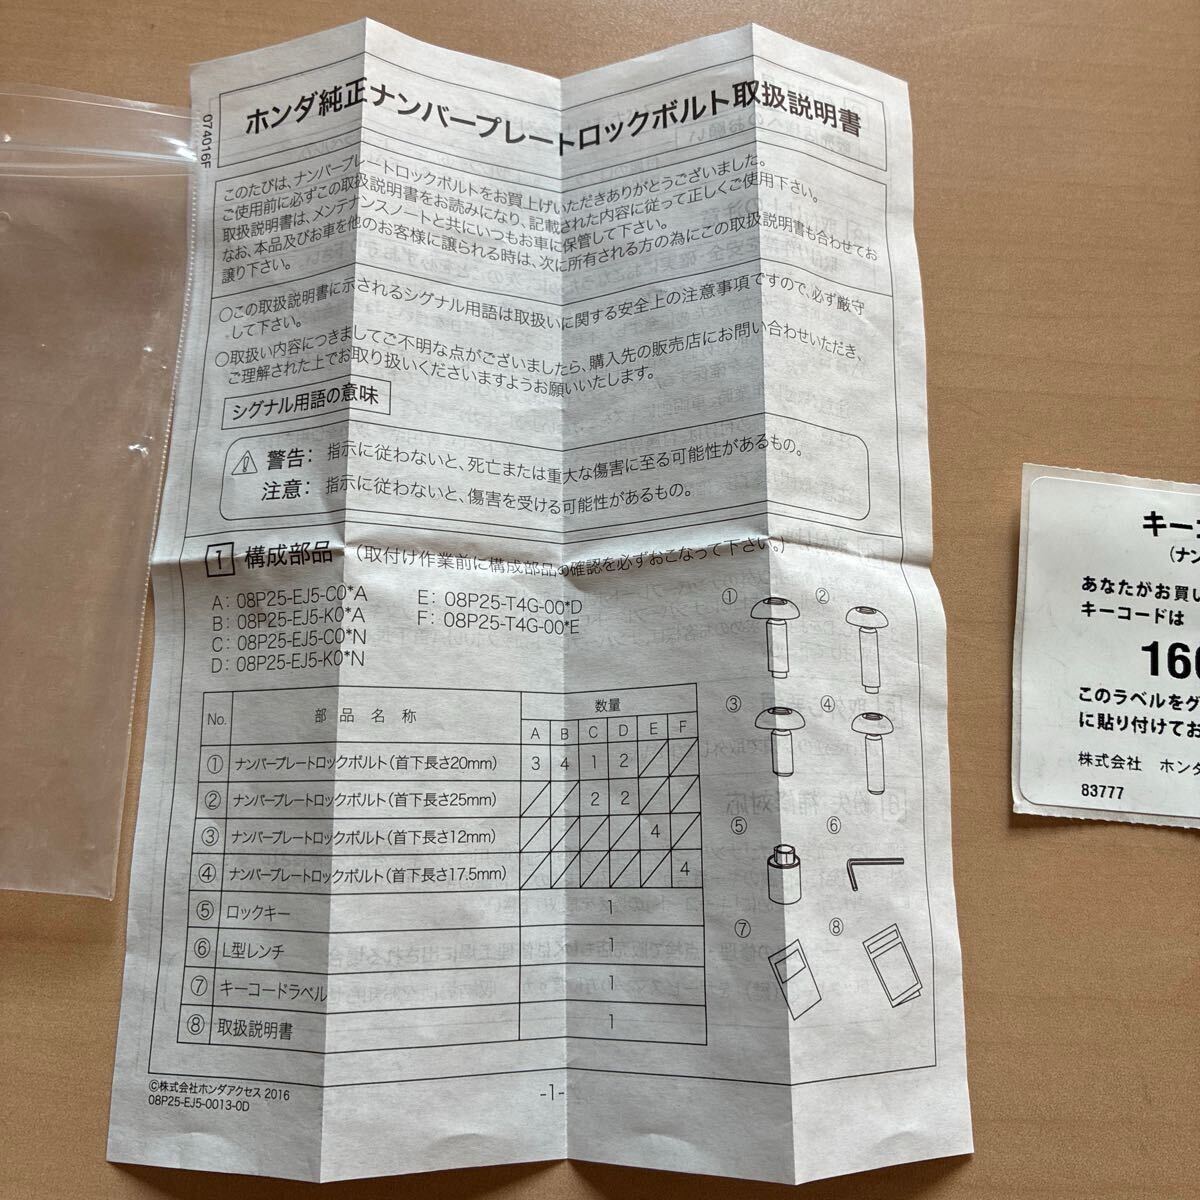 074016F
ホンダ純正ナンバープレートロックボルト取扱説明書
このたびは、ナンバープレートロックボルトをお買上げいただきありがとうございました。
ご使用前に必ずこの取扱説明書をお読みになり、記載された内容に従って正しくご使用下さい。
取扱説明書は、メンテナンスノートと共にいつもお車に保管して下さい。
なお、本品及びお車を他のお客様に譲られる時は、次に所有される方の為にこの取扱説明書も合わせてお
譲り下さい。
○この取扱説明書に示されるシグナル用語は取扱いに関する安全上の注意事項ですので、必ず厳守
して下さい。
○取扱い内容につきましてご不明な点がございましたら、購入先の販売店にお問い合わせいただき、
ご理解された上でお取り扱いくださいますようお願いいたします。
シグナル用語の意味
⚠ 警告: 指示に従わないと、死亡または重大な傷害に至る可能性があるもの。
注意: 指示に従わないと、傷害を受ける可能性があるもの。
1 構成部品 (取付け作業前に構成部品の確認を必ずおこなって下さい。)
A: 08P25-EJ5-C0*A
B: 08P25-EJ5-K0*A
C: 08P25-EJ5-C0*N
D: 08P25-EJ5-K0*N
E: 08P25-T4G-00*D
F: 08P25-T4G-00*E
No. 部品名称 数量
A B C D E F
① ナンバープレートロックボルト(首下長さ20mm) 3 4 1 2
② ナンバープレートロックボルト(首下長さ25mm) 2 2
③ ナンバープレートロックボルト(首下長さ12mm) 4
④ ナンバープレートロックボルト(首下長さ17.5mm) 4
⑤ ロックキー 1
⑥ L型レンチ 1
⑦ キーコードラベル 1
⑧ 取扱説明書 1
① ②
③ ④
⑤ ⑥
⑦ ⑧
©株式会社ホンダアクセス 2016
08P25-EJ5-0013-0D
-1-
キー
(ナン
あなたがお買い
キーコードは
16
このラベルをグ
に貼り付けてお
株式会社 ホンダ
83777